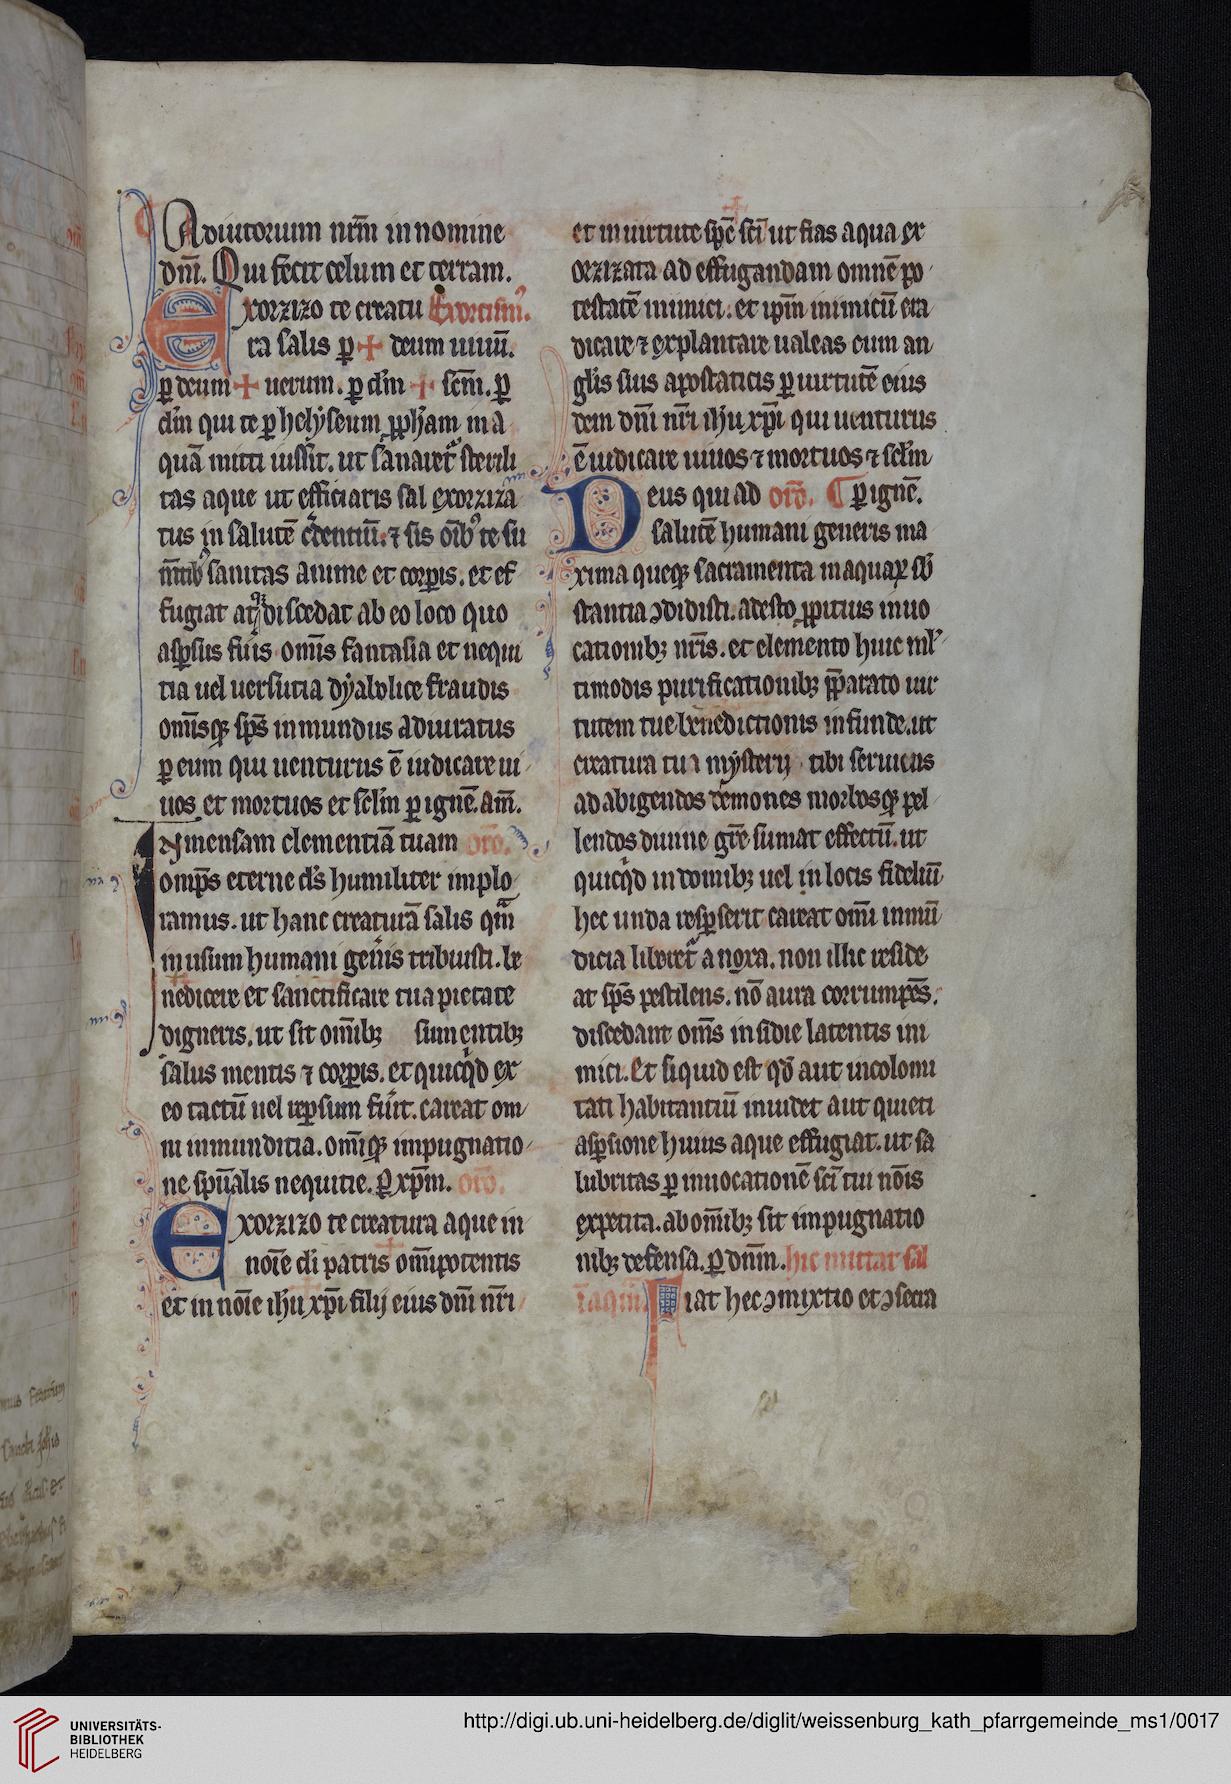 Adiutorium nr̄m in nomine
dn̄i. Qui fecit celum et terram.
Exorzizo te creatu Exorcismꝰ.
ra salis ꝑ ✝ deum uiuū.
ꝑ deum ✝ uerum. ꝑ dm̄ ✝ sc̄m. ꝑ
dm̄ qui te ꝑ helyseum ꝓph̄am in a
quā mitti iussit. ut sanaretᷣ sterili
tas aque ut efficiaris sal exorziza
tus in salutē c̄dentiū. ⁊ sis oīb; te su
m̄tib; sanitas anime et corꝑis. et ef
fugiat atꝗ discedat ab eo loco quo
asꝑsus fūis omīs fantasia et nequi
tia uel uersutia dyabolice fraudis
omīsꝗ; sps̄ inmundus adiuratus
ꝑ eum qui uenturus ē iudicare ui
uos et mortuos et sclm̄ ꝑ ignē. am̄.
Inmensam clementiā tuam orō.
omps̄ eterne ds̄ humiliter implo
ramus. ut hanc creaturā salis qm̄
in usum humani gen̄is tribuisti. be
nedicere et sanctificare tua pietate
digneris. ut sit omīb; sumentib;
salus mentis ⁊ corꝑis. et quicq̇d ex
eo tactū uel resꝑsum fūit. careat om
ni inmunditia. omīꝗ; impugnatio
ne spūalis nequitie. ꝑ xpm̄. orō.
Exorzizo te creatura aque in
noīe dī patris omīpotentis
et in noīe ihu xpī filij eius dnī nr̄i
et in uirtute spc̄ scī ut fias aqua ex
orzizata ad effugandam omnē po
testatē inimici. et ipm̄ inimicū era
dicare ⁊ explantare ualeas cum an
glis̄ suis apostaticis ꝑ uirtutē eius
dem dnī nr̄i ihu xpī qui uenturus
ē iudicare uiuos ⁊ mortuos ⁊ sclm̄
Deus qui ad orō. ꝑ ignē.
salutē humani generis ma
xima queꝗ; sacramenta in aquaꝝ sb̄
stantia ↄdidisti. adesto ꝓpitius inuo
cationib; nr̄is. et elemento huic ml̄
timodis purificationib; p̄parato uir
tutem tue benedictionis infunde. ut
creatura tua mysterij tibi seruiens
ad abigendos demones morbosꝗ; pel
lendos diuine gr̄e sumat effectū. ut
quicq̇d in domib; uel in locis fideliū
hec unda resꝑserit careat omī inmū
dicia liberetᷣ a noxa. non illic reside
at sps̄ pestilens. nō aura corrumpēs.
discedant omīs insidie latentis ini
mici. Et siquid est qd̄ aut incolomi
tati habitantiū inuidet aut quieti
asꝑsione huius aque effugiat. ut sa
lubritas ꝑ inuocationē scī tui nōis
expetita. ab omīb; sit impugnatio
nib; defensa. ꝑ dnm̄. hic mittat sal
ī aquā Fiat hec ↄmixtio et ↄsecra
UNIVERSITÄTS-
BIBLIOTHEK
HEIDELBERG
http://digi.ub.uni-heidelberg.de/diglit/weissenburg_kath_pfarrgemeinde_ms1/0017